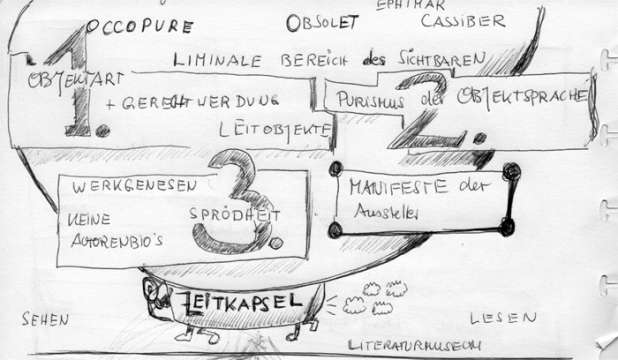 EPHIMAR
OCCOPURE OBSOLET CASSIBER
LIMINALE BEREICH des SICHTBAREN
1.
OBJEKTART
+ GERECHTWERDUNG
LEITOBJEKTE
2.
PURISMUS der OBJEKTSPRACHE
3.
WERKGENESEN
KEINE SPRÖDHEIT
AUTORENBIO'S
MANIFESTE der
Aussteller
ZEITKAPSEL
SEHEN
LESEN
LITERATURMUSEUM